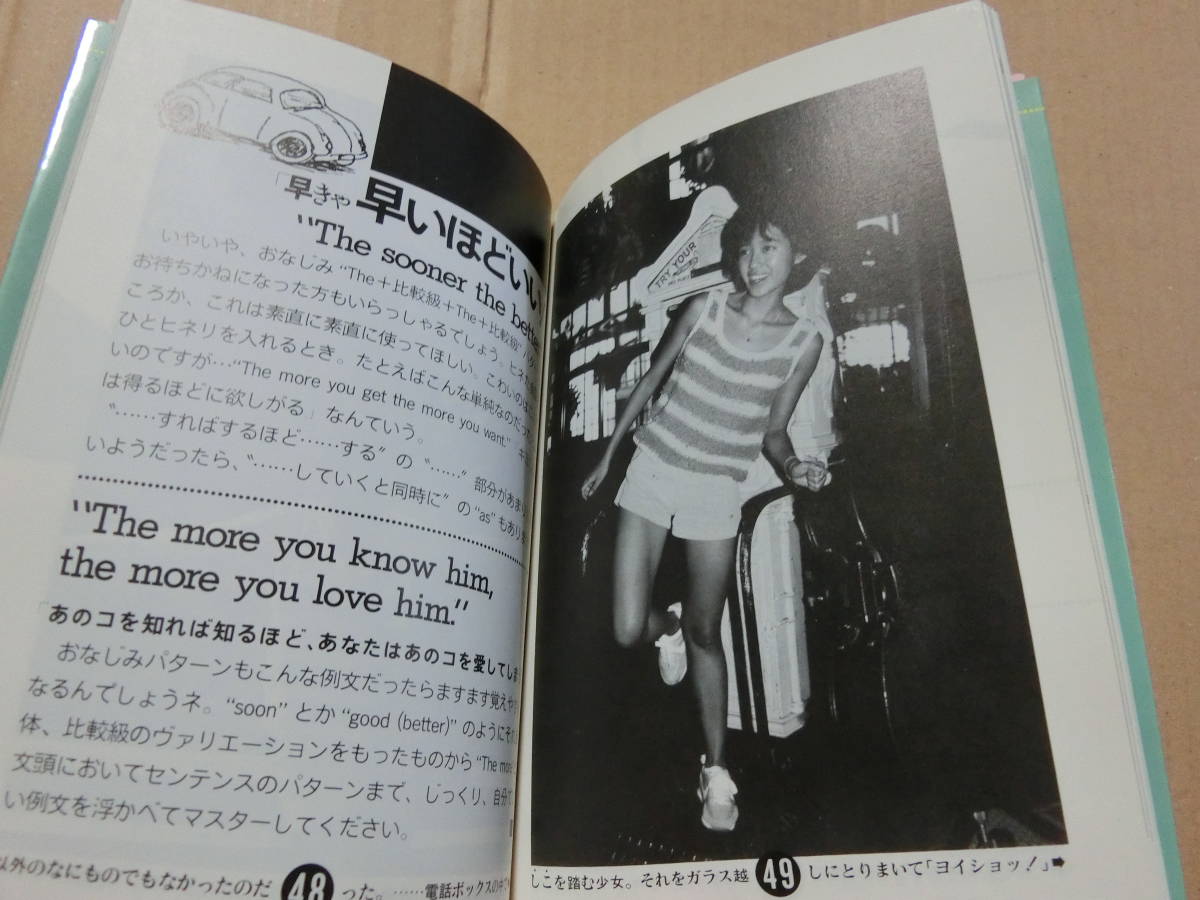 「早きゃ早いほどいい
"The sooner the bette
いやいや、おなじみ“The＋比較級＋The＋比較級”
お待ちかねになった方もいらっしゃるでしょう。ヒネ
ころか、これは素直に素直に使ってほしい。こわいのは
ひとヒネリを入れるとき。たとえばこんな単純なのだっ
いのですが…“The more you get the more you want.”
は得るほどに欲しがる」なんていう。
〝……すればするほど……する〟の〝……〟部分があま
いようだったら、〝……していくと同時に〟の“as”もあり
"The more you know him,
the more you love him."
「あのコを知れば知るほど、あなたはあのコを愛してしま
おなじみパターンもこんな例文だったらますます覚えや
なるんでしょうネ。“soon”とか“good (better)”のようにそれ
体、比較級のヴァリエーションをもったものから“The more
文頭においてセンテンスのパターンまで、じっくり、自分で
い例文を浮かべてマスターしてください。
以外のなにものでもなかったのだ 48 った。……電話ボックスの
TRY YOUR
しこを踏む少女。それをガラス越 49 しにとりまいて「ヨイショッ！」➡